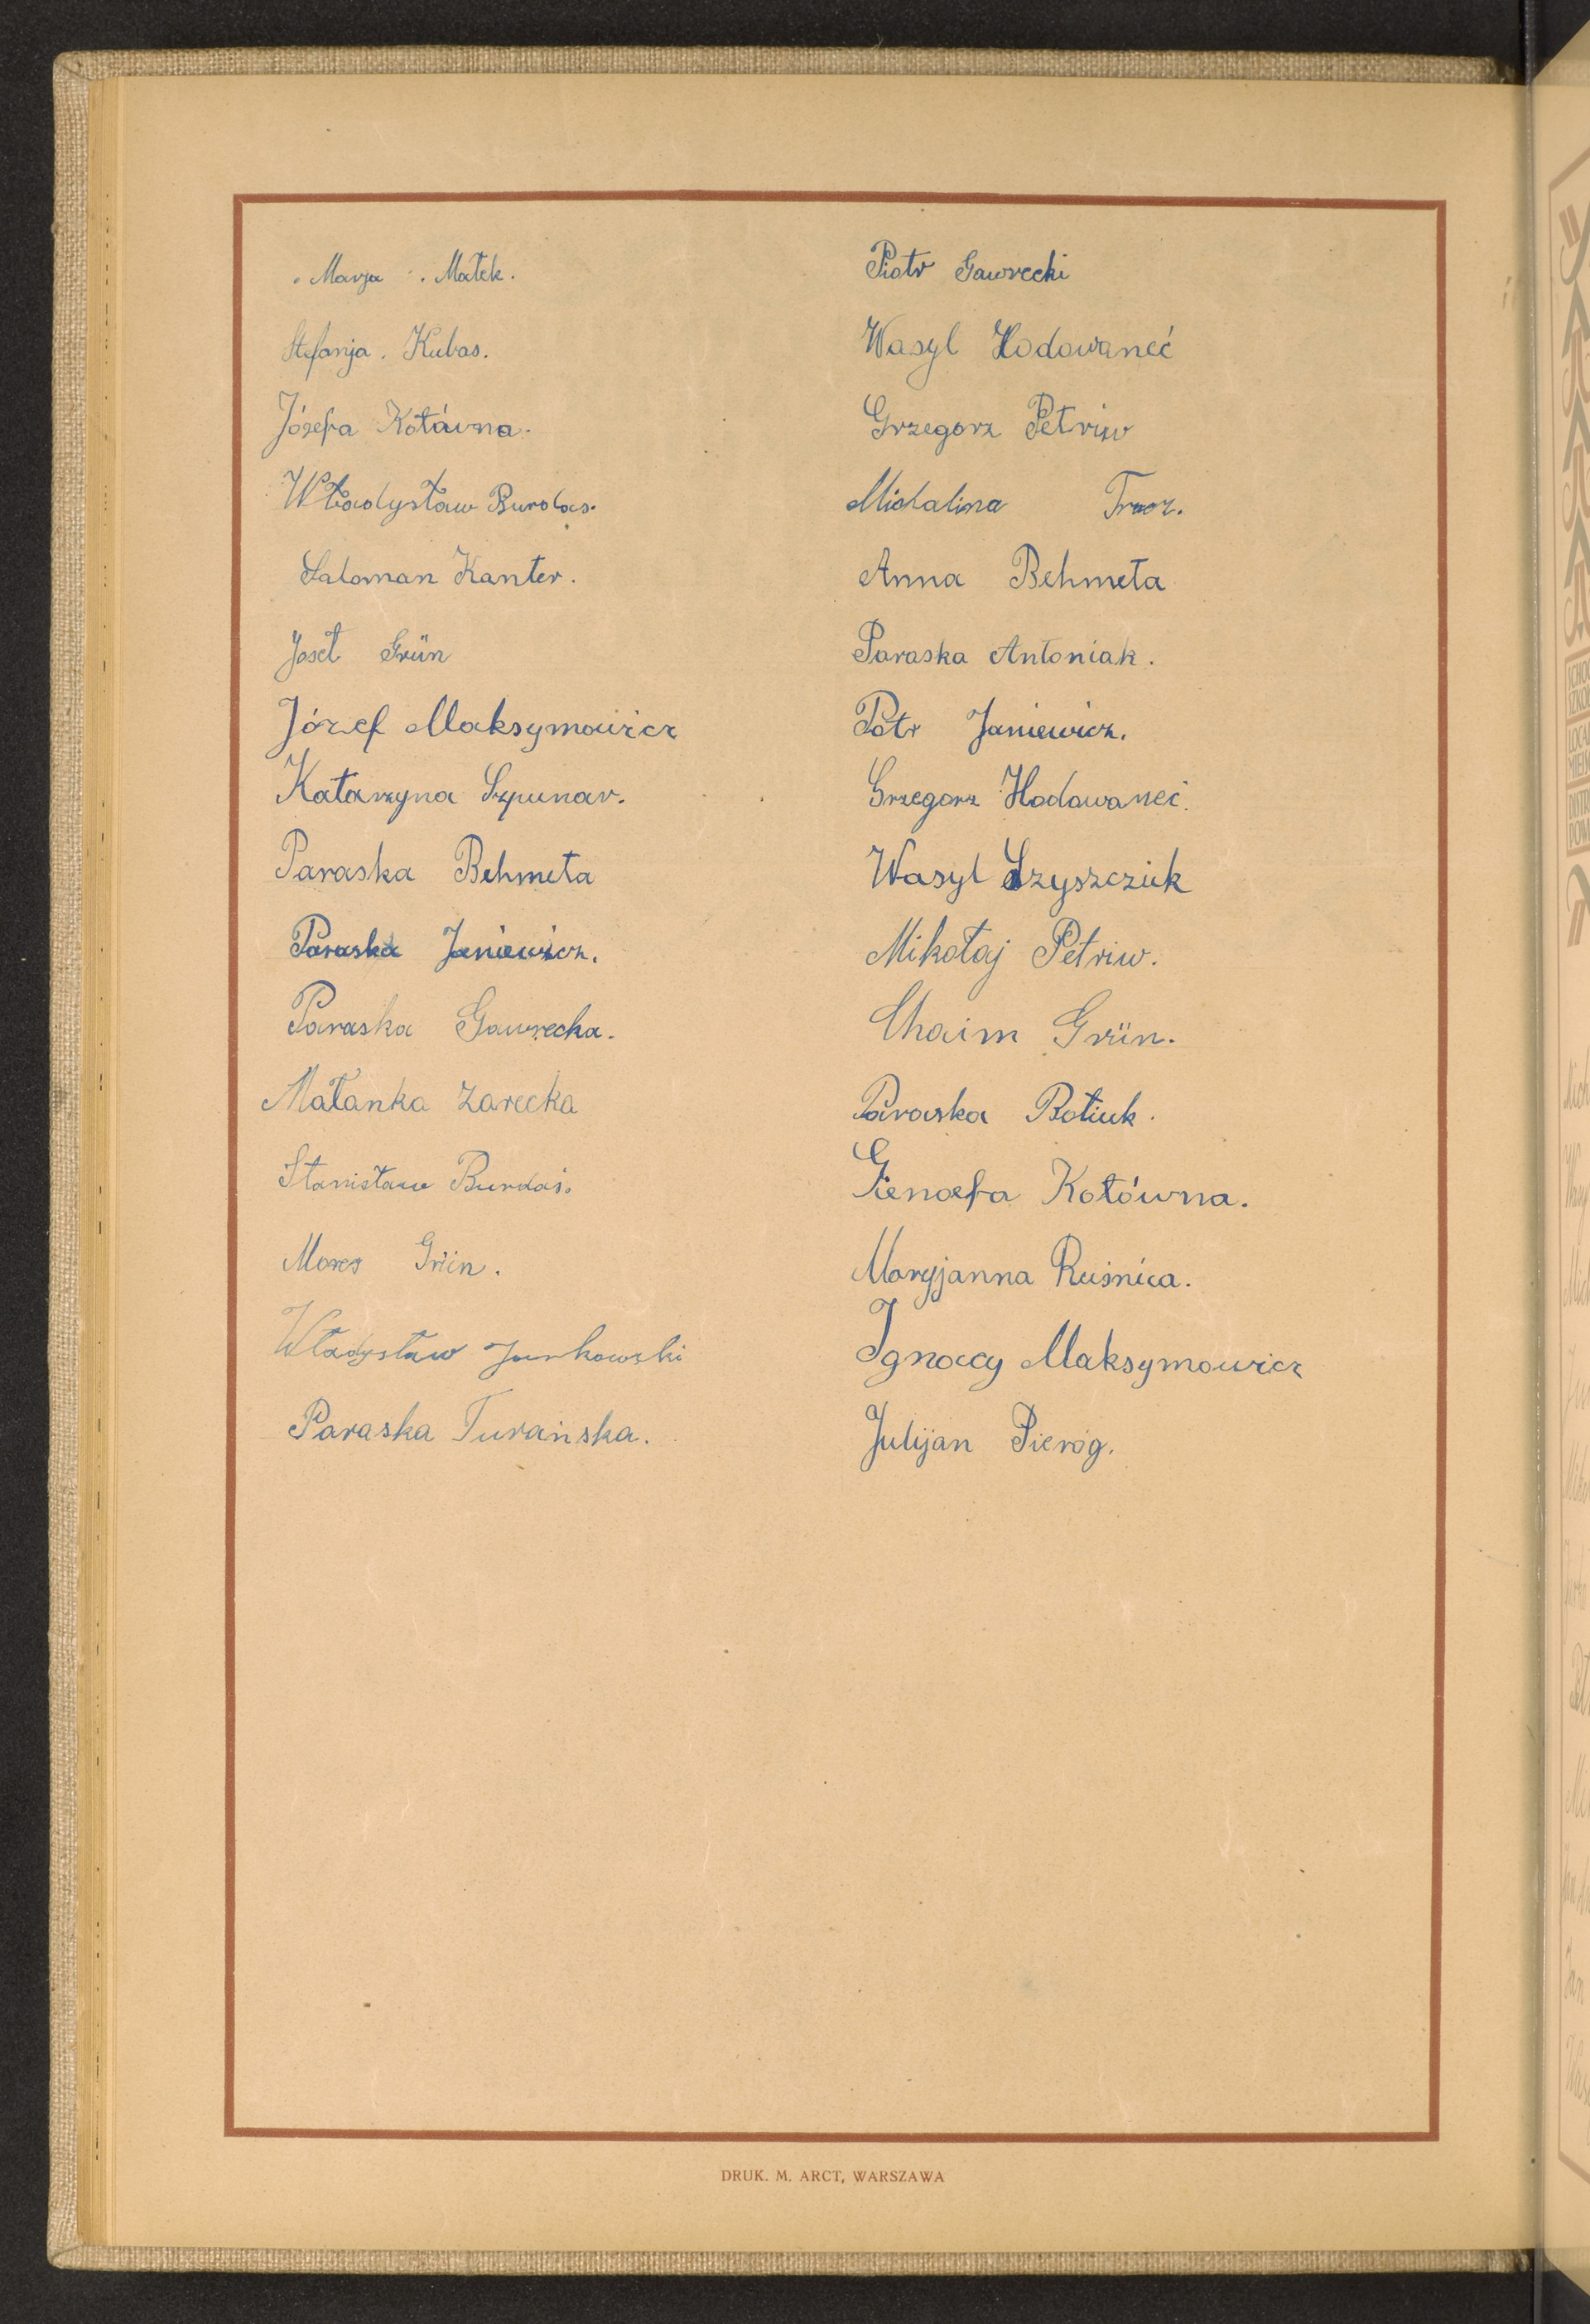 Marja Małek.
Stefanja. Kubas.
Józefa Kotówna.
Władysław Burdas.
Saloman Kanter.
Joset Grün
Józef Maksymowicz
Katarzyna Szpunar.
Paraska Behmeta
Paraska Janiewicz.
Paraska Gawrecka.
Małanka Zarecka
Stanisław Burdaś.
Moses Grün.
Władysław Jankowski
Paraska Turańska.
Piotr Gawrecki
Wasyl Hodowaneć
Grzegorz Petriw
Michalina
Anna Behmeta
Paraska Antoniak.
Potr Janiewicz.
Grzegorz Hodowaneć.
Wasyl Szyszcziuk
Mikołaj Petriw.
Chaim Grün.
Paraska Botiuk.
Gienoefa Kotówna.
Maryjanna Ruśnica.
Ignacy Maksymowicz
Julijan Pieróg.
DRUK. M. ARCT, WARSZAWA